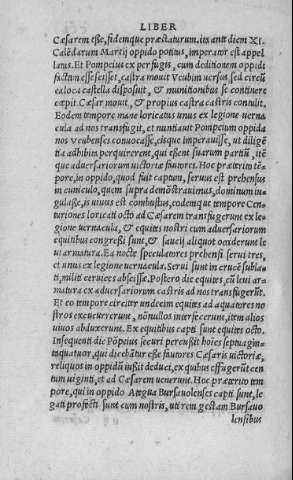 LIBER
Cæsarem esse, fidemque præstaturum. ita ante diem XI.
Calēdarum Martij oppido potitus, imperator est appel
latus. Et Pompeius ex perfugis, cum deditionem oppidi
factam esse scisset, castra mouit Vcubim uersus, sed circū
ea loca castella disposuit, & munitionibus se continere
cœpit. Cæsar mouit, & propius castra castris contulit.
Eodem tempore mane loricatus unus ex legione uerna
cula ad nos transfugit, et nuntiauit Pompeium oppida
nos Vcubenses conuocasse, eisque imperauisse, ut diligē
tia adhibita perquirerent, qui essent suarum partiū, itē
que aduersariorum uictoriæ fautores. Hoc præterito tē=
pore, in oppido, quod fuit captum, seruus est prehensus
in cuniculo, quem supra demōstrauimus, dominum iu=
gulasse, is uiuus est combustus, eodemque tempore Cen=
turiones loricati octo ad Cæsarem transfugerunt ex le=
gione uernacula, & equites nostri cum aduersariorum
equitibus congressi sunt, & saucij aliquot occiderunt le
ui armatura. Ea nocte speculatores prehensi serui tres,
et unus ex legione uernacula. Serui sunt in crucē subla=
ti, militi ceruices abscissæ. Postero die equites, cū leui ar=
matura ex aduersariorum castris ad nos transfugerūt.
Et eo tempore circiter undecim equites ad aquatores no
stros excucurrerunt, nōnullos interfecerunt, item alios
uiuos abduxerunt. Ex equitibus capti sunt equites octo.
Insequenti die Pōpeius securi percussit hoīes septuagin=
taquatuor, qui dicebātur esse fautores Cæsaris uictoriæ,
reliquos in oppidū iussit deduci, ex quibus effugerūt cen
tum uiginti, et ad Cæsarem uenerunt. Hoc præterito tem
pore, qui in oppido Ategua Bursauolenses capti sunt, le
gati profecti sunt cum nostris, uti rem gestam Bursauo
lensibus